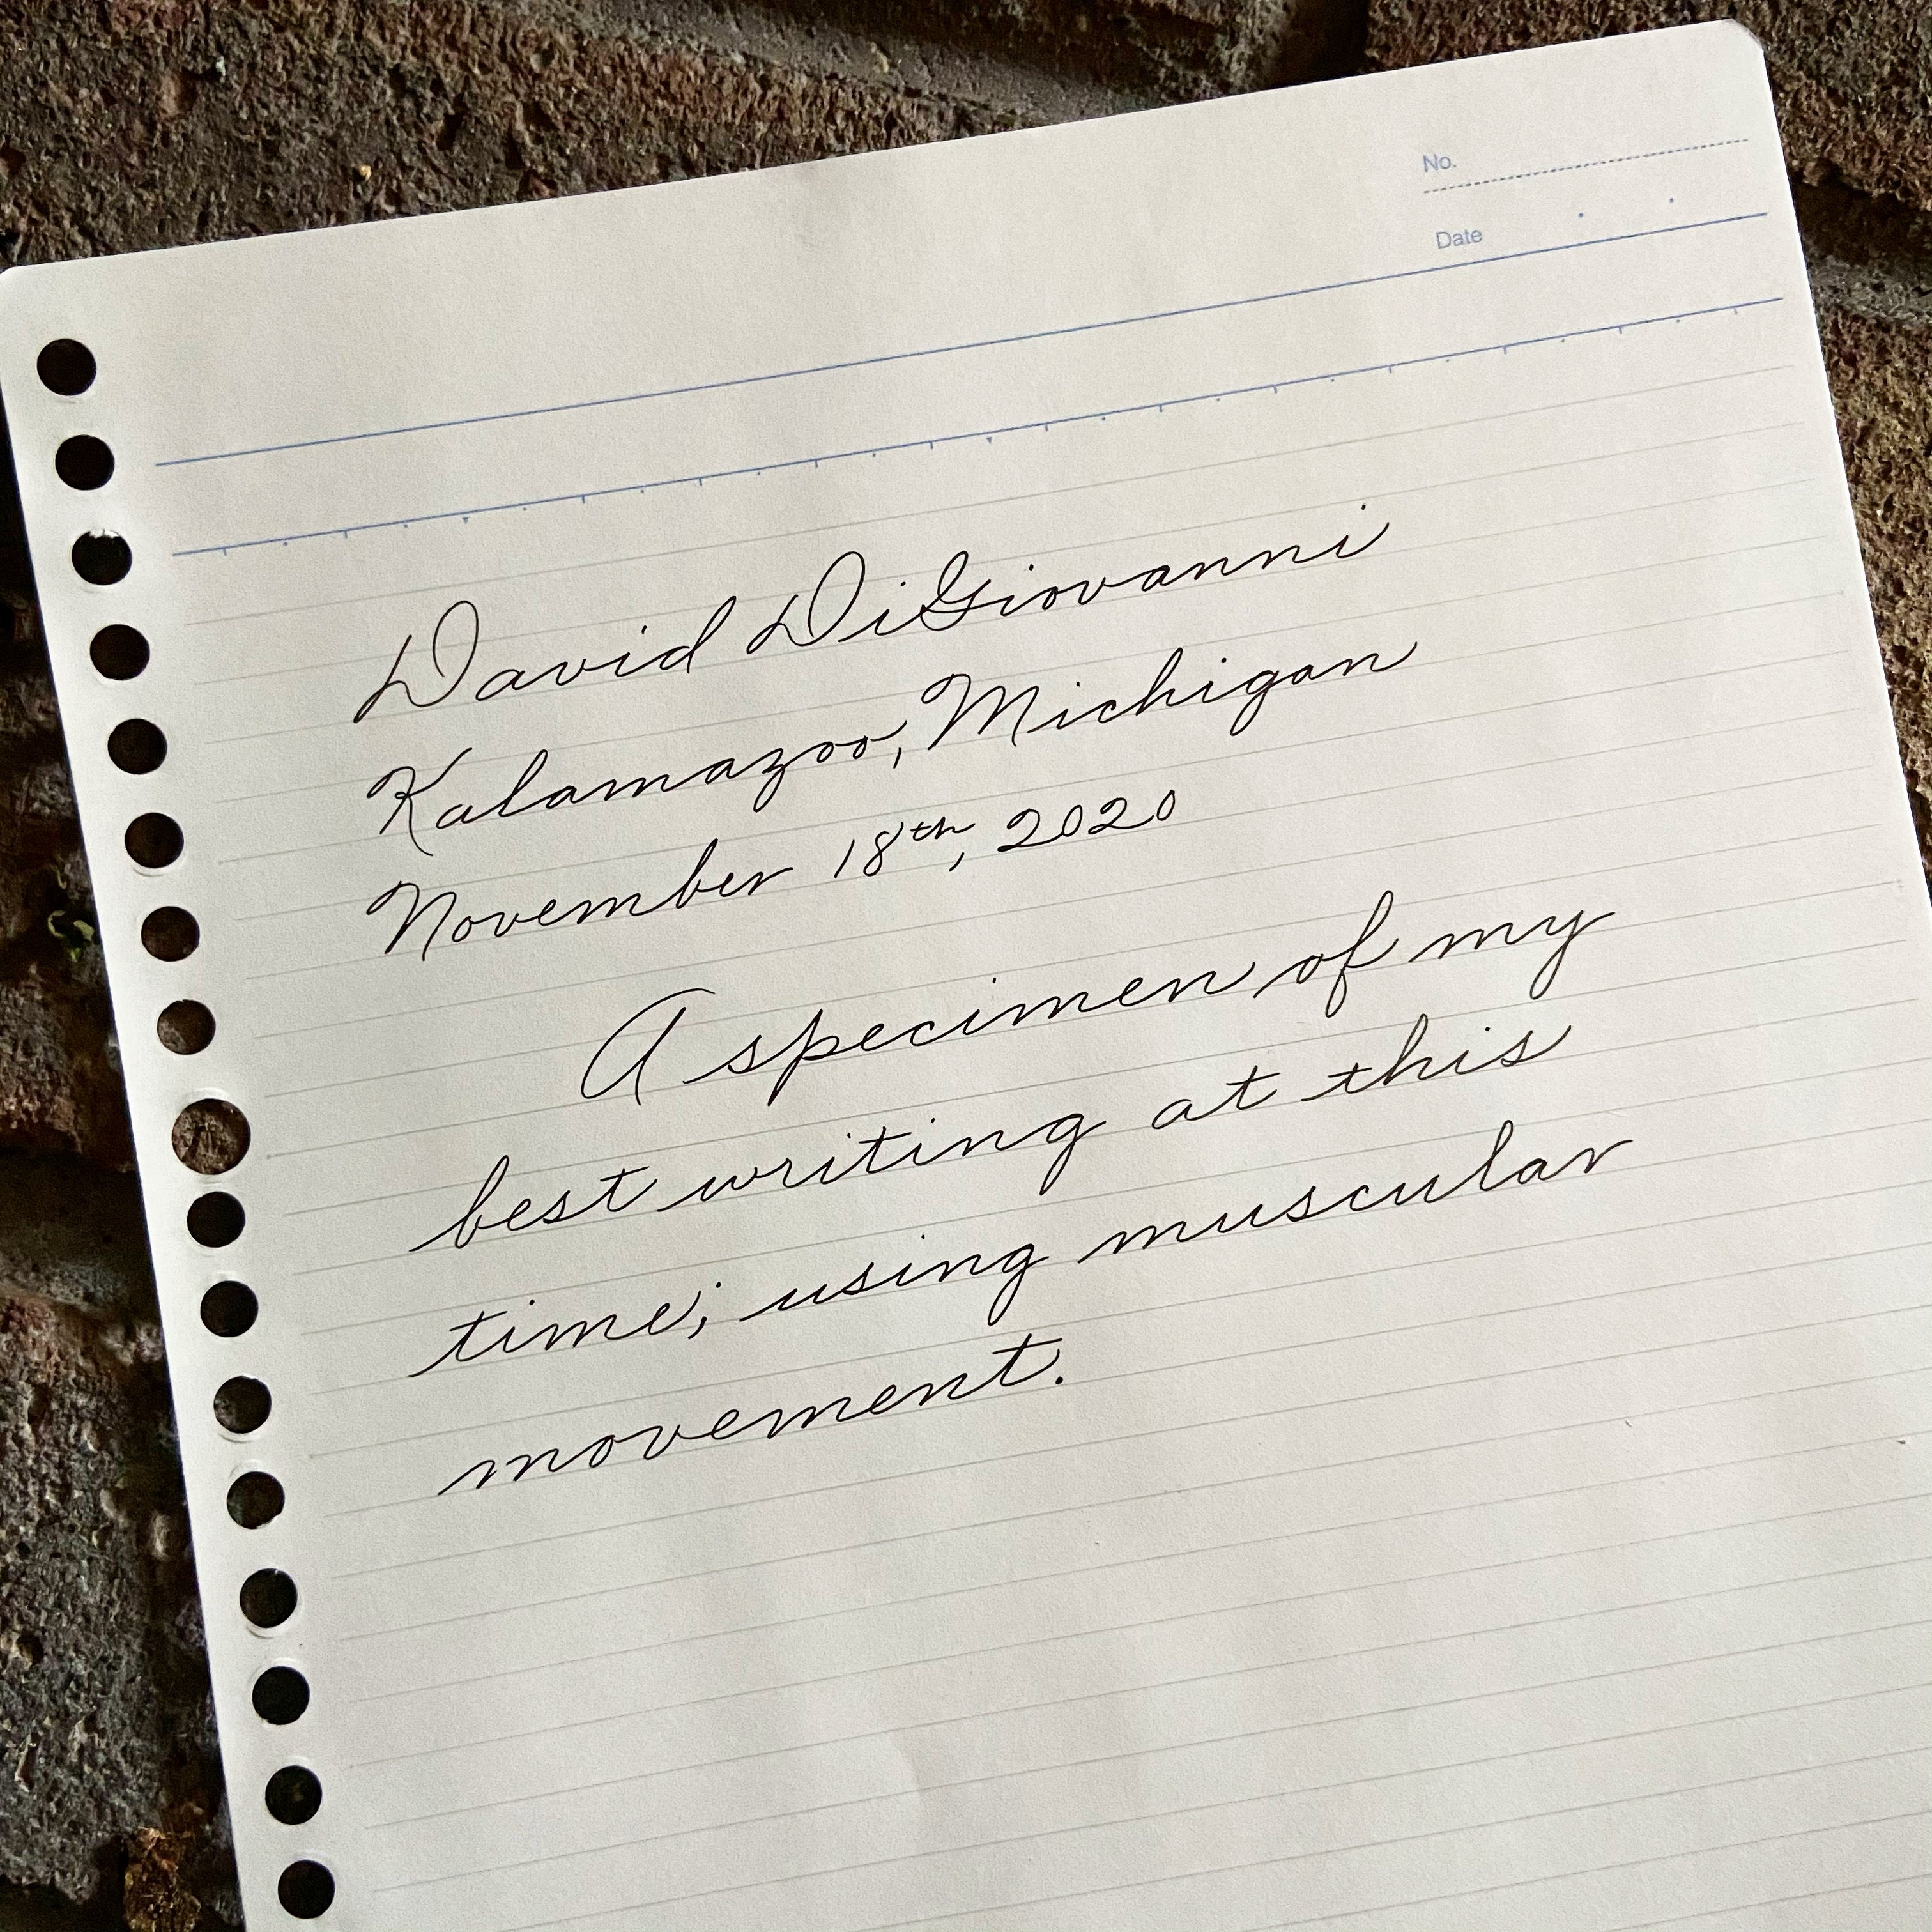 No.
Date
David DiGiovanni
Kalamazoo, Michigan
November 18th, 2020
A specimen of my
best writing at this
time; using muscular
movement.